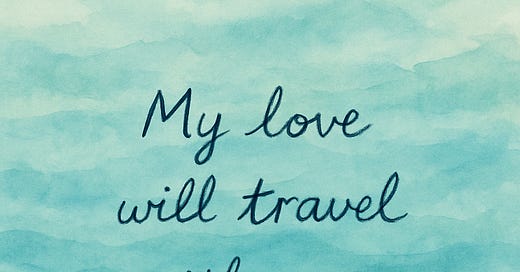 My love
will travel